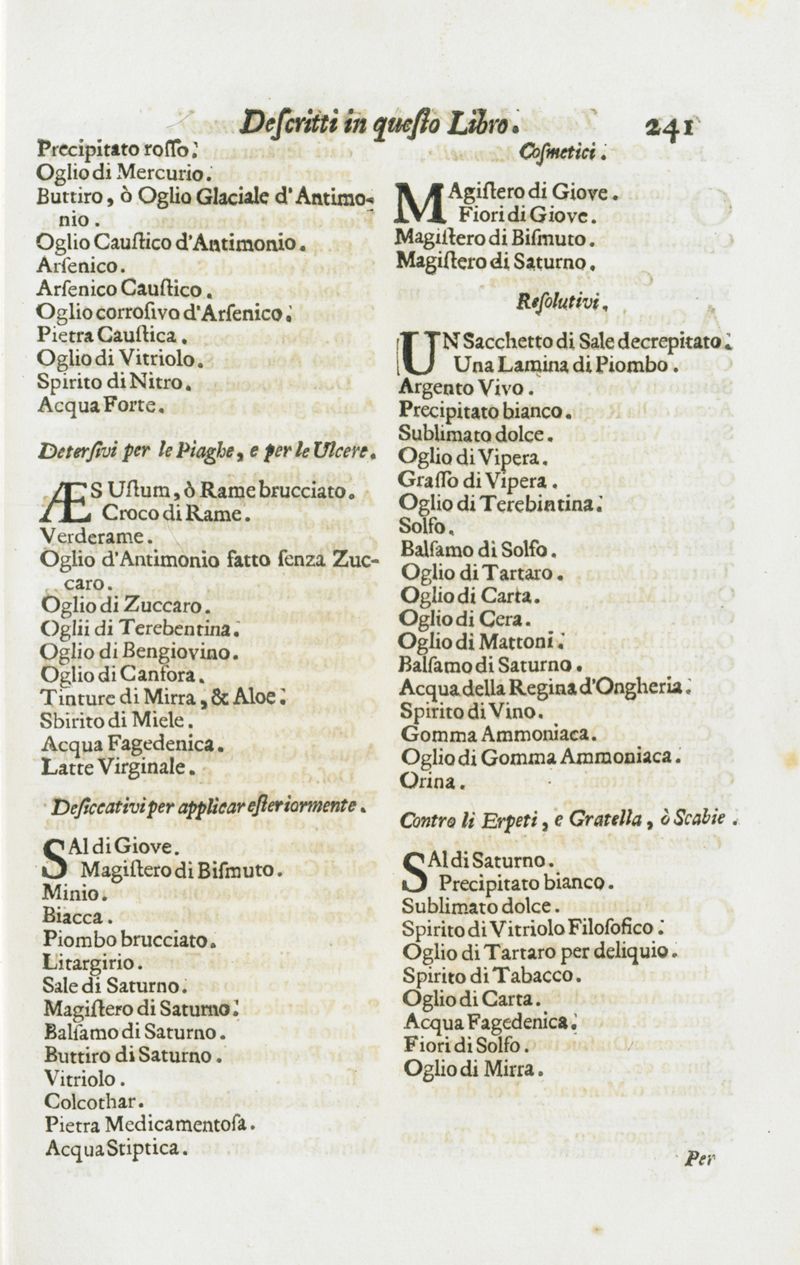 Deſcritti in queſto Libro. 241
Precipitato roſſo.
Oglio di Mercurio.
Buttiro, ò Oglio Glaciale d'Antimo-
nio.
Oglio Cauſtico d'Antimonio.
Arſenico.
Arſenico Cauſtico.
Oglio corroſivo d'Arſenico.
Pietra Cauſtica.
Oglio di Vitriolo.
Spirito di Nitro.
Acqua Forte.
Deterſivi per le Piaghe, e per le Ulcere.
ÆS Uſtum, ò Rame brucciato.
Croco di Rame.
Verderame.
Oglio d'Antimonio fatto ſenza Zuc-
caro.
Oglio di Zuccaro.
Oglii di Terebentina.
Oglio di Bengiovino.
Oglio di Canfora.
Tinture di Mirra, & Aloe.
Sbirito di Miele.
Acqua Fagedenica.
Latte Virginale.
Deſiccativi per applicar eſteriormente.
SAl di Giove.
Magiſtero di Biſmuto.
Minio.
Biacca.
Piombo brucciato.
Litargirio.
Sale di Saturno.
Magiſtero di Saturno.
Balſamo di Saturno.
Buttiro di Saturno.
Vitriolo.
Colcothar.
Pietra Medicamentoſa.
Acqua Stiptica.
Coſmetici.
MAgiſtero di Giove.
Fiori di Giove.
Magiſtero di Biſmuto.
Magiſtero di Saturno.
Reſolutivi.
UN Sacchetto di Sale decrepitato.
Una Lamina di Piombo.
Argento Vivo.
Precipitato bianco.
Sublimato dolce.
Oglio di Vipera.
Graſſo di Vipera.
Oglio di Terebintina.
Solfo.
Balſamo di Solfo.
Oglio di Tartaro.
Oglio di Carta.
Oglio di Cera.
Oglio di Mattoni.
Balſamo di Saturno.
Acqua della Regina d'Ongheria.
Spirito di Vino.
Gomma Ammoniaca.
Oglio di Gomma Ammoniaca.
Orina.
Contro li Erpeti, e Gratella, ò Scabie.
SAl di Saturno.
Precipitato bianco.
Sublimato dolce.
Spirito di Vitriolo Filoſofico.
Oglio di Tartaro per deliquio.
Spirito di Tabacco.
Oglio di Carta.
Acqua Fagedenica.
Fiori di Solfo.
Oglio di Mirra.
Per